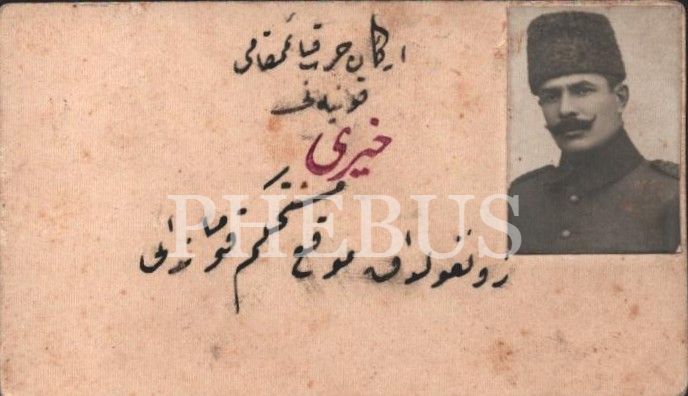 اركان حرب قائممقامى
قونيه‌لى
خيرى
زونغولداق موقع مستحكم قوماندانى
PHEBUS